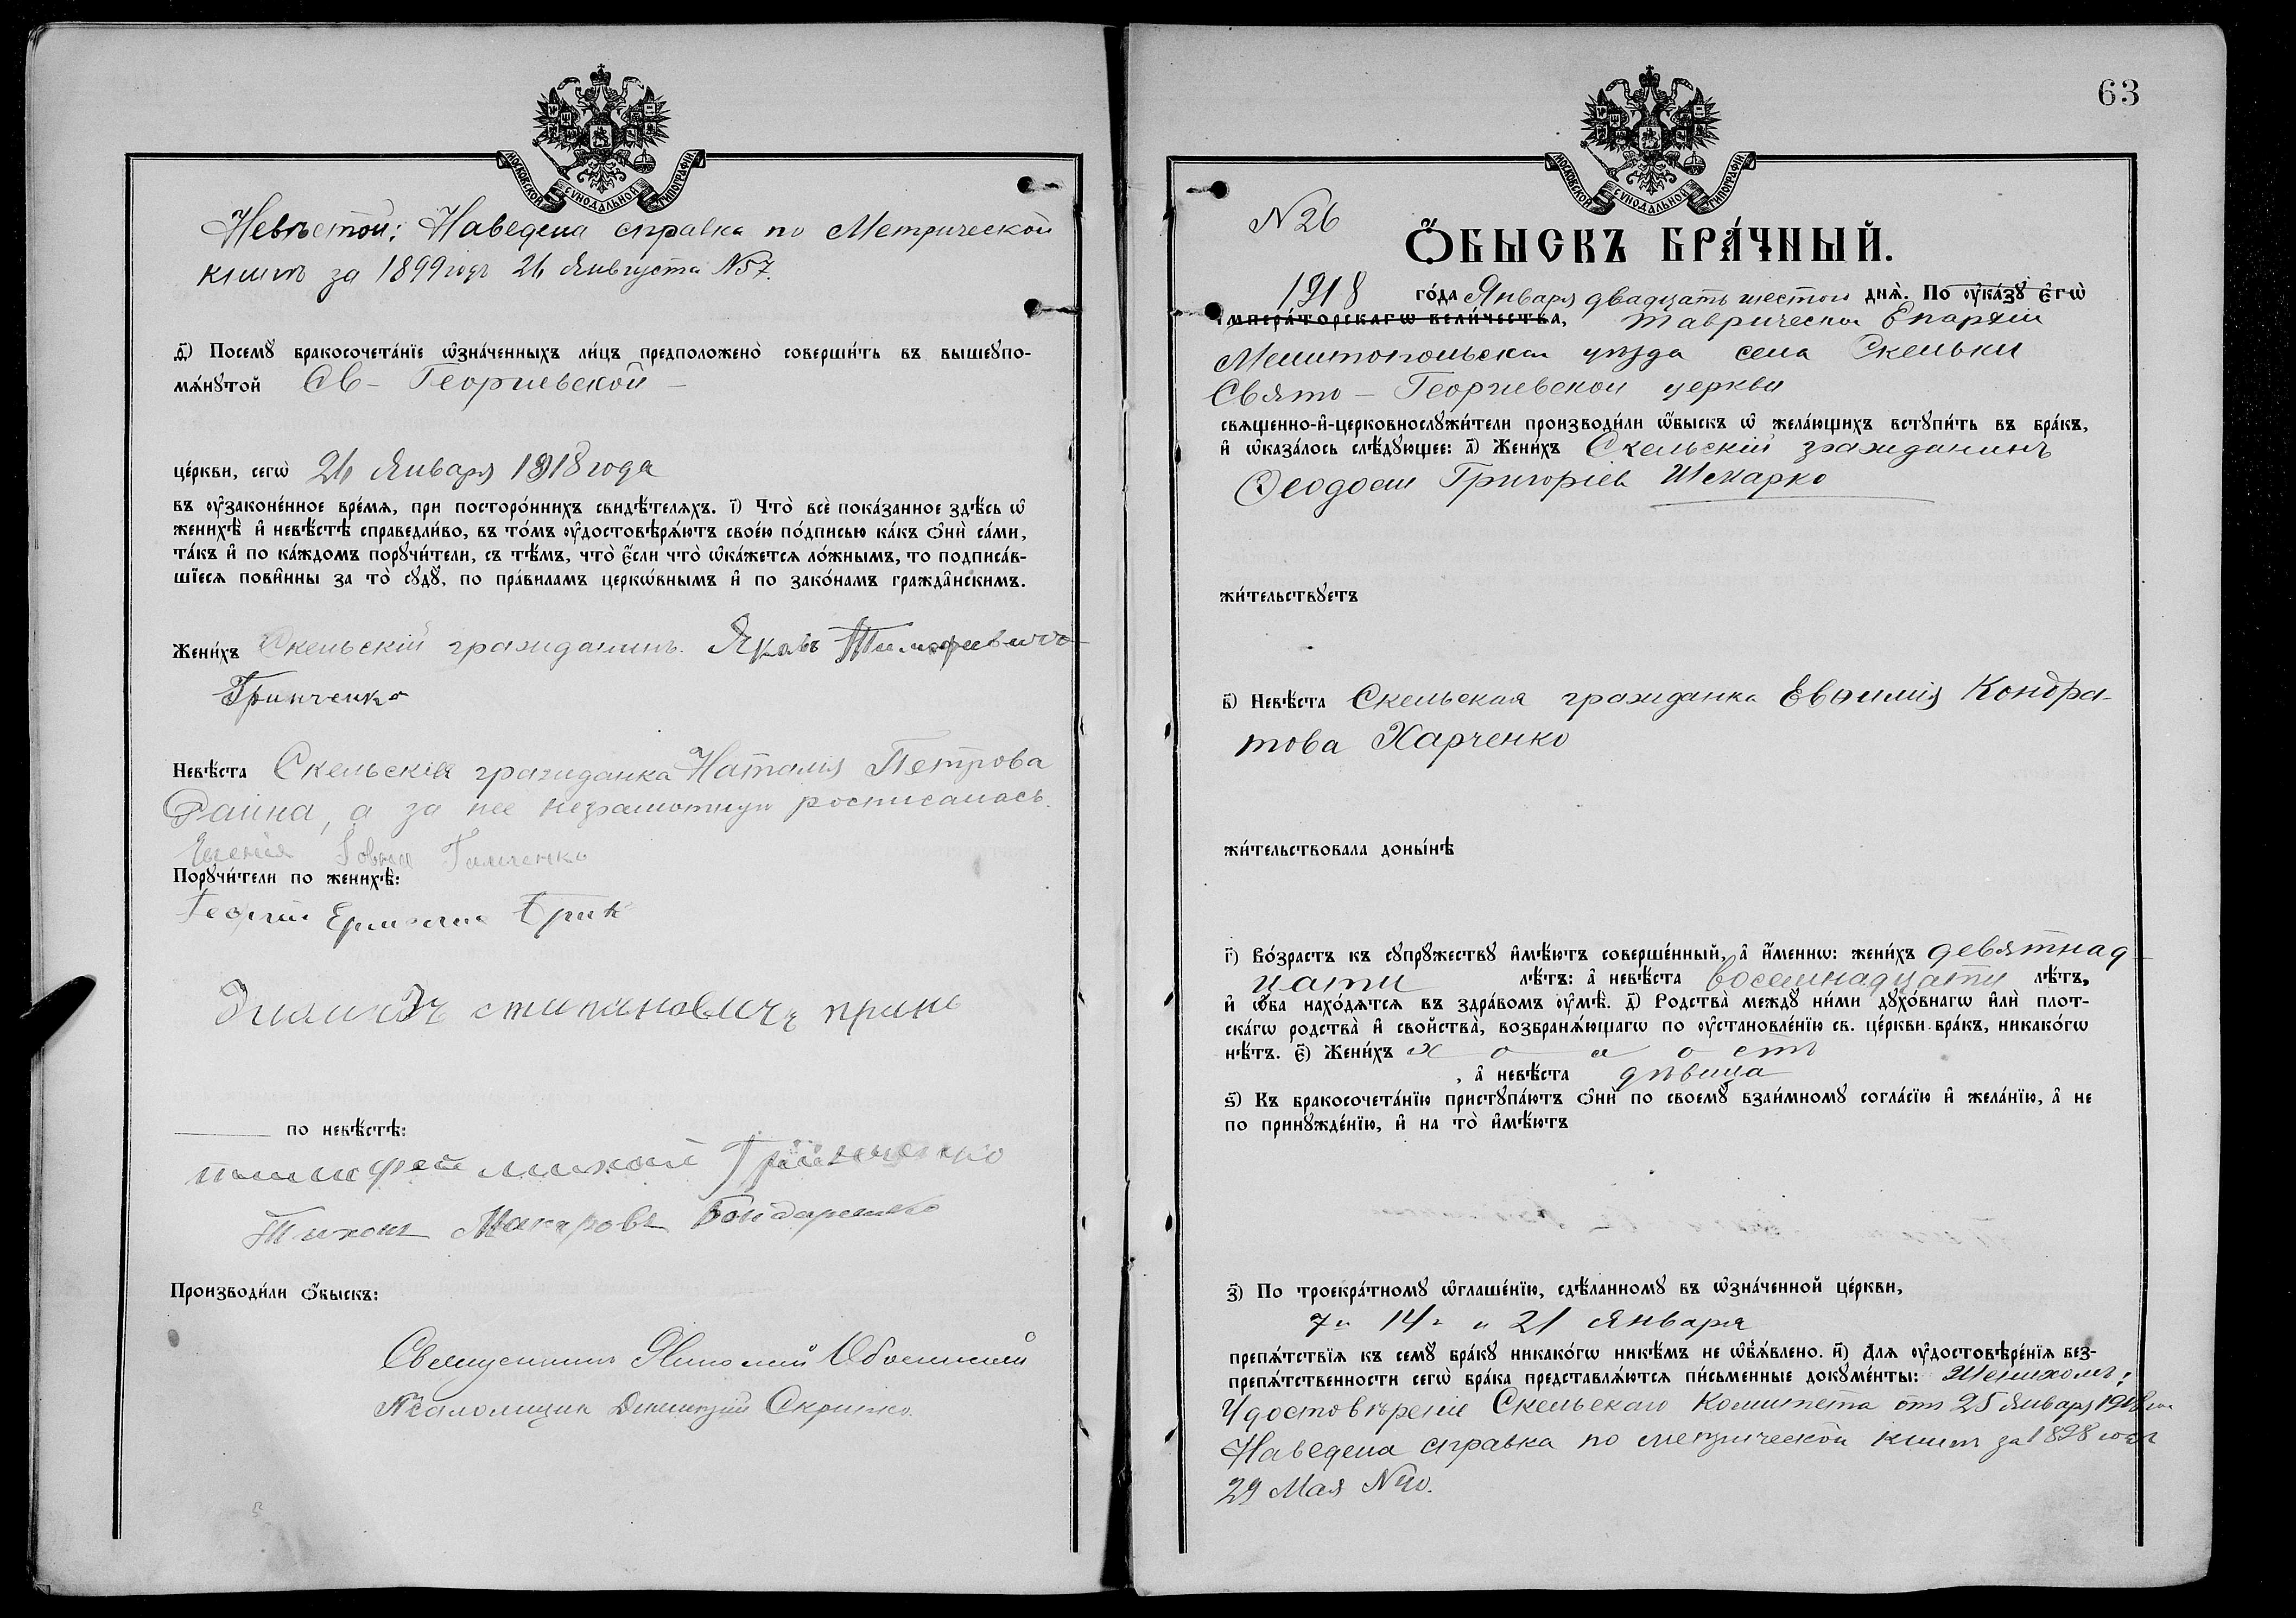 МОСКОВСКОЙ СѴНОДАЛЬНОЙ ТИПОГРАФІИ
Невѣстой: Наведена справка по Метрической
книгѣ за 1899 годъ 26 Августа №57.
д҃) Посемꙋ бракосочета́нїе ѡ҆зна́ченныхъ ли́цъ предположено̀ соверши́ть въ вышеꙋпо-
мѧ́нꙋтой Св- Георгіевской -
це́ркви, сегѡ̀ 26 Января 1918 года
въ ᲂу҆законе́нное вре́мѧ, при посторо́ннихъ свидѣ́телѧхъ. і҃) Что̀ всѐ пока́занное здѣ́сь ѡ҆
женихѣ̀ и҆ невѣ́стѣ справедли́во, въ то́мъ ᲂу҆достовѣрѧ́ютъ свое́ю по́дписью ка́къ ѻ҆нѝ са́ми,
та́къ и҆ по ка́ждомъ порꙋчи́тели, съ тѣ́мъ, что̀ є҆́сли что̀ ѡ҆ка́жетсѧ ло́жнымъ, то подписа́в-
шїесѧ пови́нны за то̀ сꙋдꙋ̀, по пра́виламъ церкѡ́внымъ и҆ по зако́намъ гражда́нскимъ.
Жени́хъ Скельскій гражданинъ Яковъ Тимофеевичъ
Гринченко
Невѣ́ста Скельскія гражданка Наталія Петрова
а за нее неграмотную росписалась
Порꙋчи́тели по женихѣ̀:
Георгій
стипановичъ
по невѣ́стѣ:
тимофей Гринченко
Тихонъ Макаровъ Бондаренко
Производи́ли ѻ҆́быскъ:
Священникъ
Псаломщик Димитрій Скрипко.
63
МОСКОВСКОЙ СѴНОДАЛЬНОЙ ТИПОГРАФІИ
N 26
Ѻ҆́БЫСКЪ БРА́ЧНЫЙ.
1918 го́да Января двадцать шестого днѧ̀. По ᲂу҆ка́зꙋ є҆гѡ̀
и҆мпера́торскагѡ вели́чества, Таврической Епархіи
Мелитопольскаго уѣзда села Скельки
Свято - Георгіевской церкви
свѧщенно-и҆-церковнослꙋжи́тели производи́ли ѡ҆́быскъ ѡ҆ жела́ющихъ встꙋпи́ть въ бра́къ,
и҆ ѡ҆каза́лось слѣ́дꙋющее: а҃) Жени́хъ Скельскій гражданинъ
Ѳеодосій Григоріев Шекарко
жи́тельствꙋетъ
в҃) Невѣ́ста Скельская гражданка Евѳимія Кондра-
това Харченко
жи́тельствовала доны́нѣ
г҃) Во́зрастъ къ сꙋпрꙋ́жествꙋ и҆мѣ́ютъ соверше́нный, а҆ и҆́меннѡ: жени́хъ девятнад
цати лѣ́тъ: а҆ невѣ́ста восемнадцати лѣ́тъ,
и҆ ѡ҆́ба нахо́дѧтсѧ въ здра́вомъ ᲂу҆мѣ̀. д҃) Родства̀ междꙋ̀ ни́ми дꙋхо́внагѡ и҆лѝ плот-
ска́гѡ родства̀ и҆ свойства̀, возбранѧ́ющагѡ по ᲂу҆становле́нїю св. це́ркви бра́къ, никако́гѡ
нѣ́тъ. є҃) Жени́хъ холостъ
, а҆ невѣ́ста дѣвица
ѕ҃) Къ бракосочета́нїю пристꙋпа́ютъ ѻ҆нѝ по своемꙋ̀ взаи́мномꙋ согла́сїю и҆ жела́нїю, а҆ не
по принꙋжде́нїю, и҆ на то̀ и҆мѣ́ютъ
з҃) По троекра́тномꙋ ѡ҆глаше́нїю, сдѣ́ланномꙋ въ ѡ҆зна́ченной це́ркви,
7го 14го и 21 Января
препѧ́тствїѧ къ семꙋ̀ бра́кꙋ никако́гѡ никѣ́мъ не ѡ҆б̾ѧ́влено. и҃) Длѧ ᲂу҆достовѣре́нїѧ без-
препѧ́тственности сегѡ̀ бра́ка представлѧ́ютсѧ пи́сьменные докꙋме́нты: Женихомъ:
Удостовѣреніе Скельскаго Комитета отъ 25 Января 1918 года
Наведена справка по метрической книгѣ за 1898 годъ
29 Мая №40.